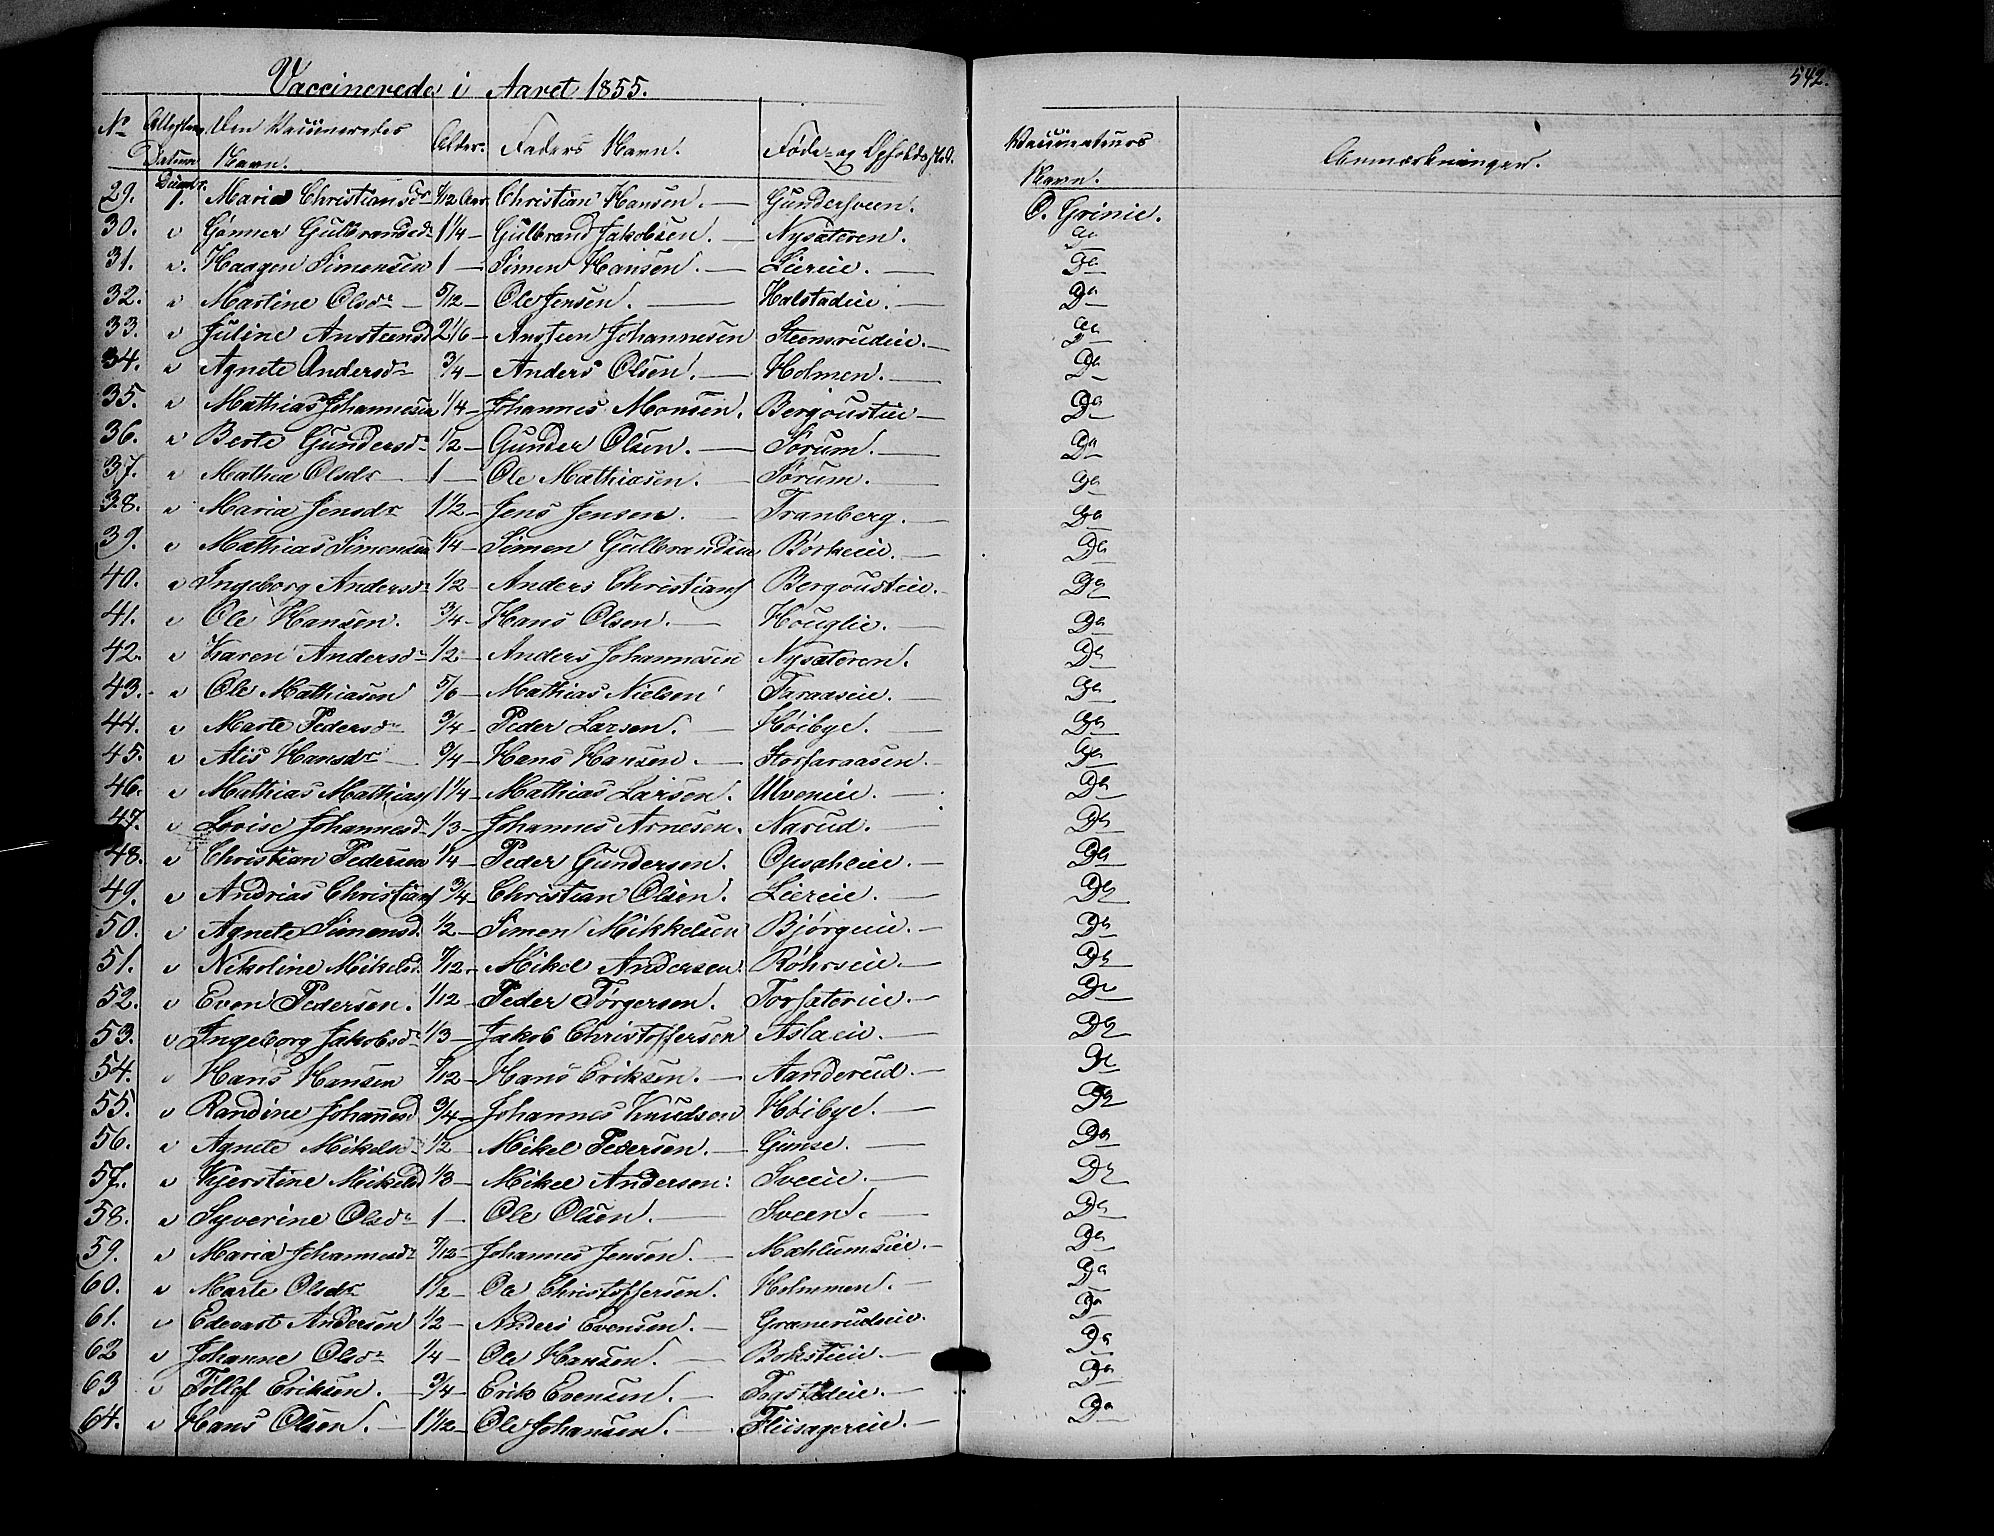 542.
Vaccinerede i Aaret 1855.
No Attestens Datum Den Vaccineredes Navn. Alder. Faders Navn. Føde- og Opholdssted. Vaccinateurs Navn. Anmærkninger.
29. Decbr. 1. Maria Christiansdr Aar Christian Hansen. — Gundersveen. O. Grinie.
30. " Gunner Gulbrandsd 1 1/4 — Gulbrand Jakobsen. — Nysæteren. Do
31. " Haagen Simensen 1 — Simen Hansen. — Liereie. — Do
32. " Martine Olsdr — 5/12 — Ole Jensen. — Halstadeie. — Do
33. " Juline Anstensd 2 1/6 — Ansteen Johannesen Steensrudeie. — Do
34. " Agnete Andersdr 3/4 — Anders Olsen. — Holmen. — Do
35. " Mathias Johannesen 1/4 — Johannes Monsen. Bergousteie — Do
36. " Berte Gundersdr 1/2 — Gunder Olsen. — Sørum. — Do
37. " Mathea Olsdr — 1 — Ole Mathiasen. — Sørum. — Do
38. " Maria Jensdr 1 1/2 — Jens Jensen. — Tranberg. — Do
39. " Mathias Simensen 1/4 — Simen Gulbrandsen Børkeeie. — Do
40. " Ingeborg Andersdr 1/2 — Anders Christians Bergousteie. — Do
41. " Ole Hansen. 3/4 — Hans Olsen. — Houglie. — Do
42. " Karen Andersdr 1/2 — Anders Johannesen Nysæteren. Do
43. " Ole Mathiasen 5/6 — Mathias Nielsen Faraaseie. — Do
44. " Marte Pedersdr 3/4 — Peder Larsen. — Høibye. — Do
45. " Alis Hansdr — 3/4 — Hans Hansen. — Storfaraasen. — Do
46. " Mathias Mathias 1 1/4 — Mathias Larsen. Ulveneie. — Do
47. " Lovise Johannesd 1/3 — Johannes Arnesen. Narud. — Do
48. " Christian Pedersen 1/4 — Peder Gundersen. Opsaheie. — Do
49. " Andrias Christians 3/4 — Christian Olsen. Liereie. — Do
50. " Agnete Simensd. 1/2 — Simen Mikkelsen Bjørgeie. — Do
51. " Nikoline Mikelsd. 7/12 — Mikel Andersen. Røhrseie. — Do
52. " Even Pedersen. 1/12 — Peder Torgersen. Torsæterie. — Do
53. " Ingeborg Jakobsdr 1/3 — Jakob Christoffersen Aslaeie. — Do
54. " Hans Hansen Hans Eriksen. — Aanderud. — Do
55. " Randine Johannesd 3/4 — Johannes Knudsen Høibye. — Do
56. " Agnete Mikelsdr 1/2 — Mikel Pedersen. — Gunse. — Do
57. " Kjerstine Mikelsd 1/3 — Mikel Andersen. Sveeie. — Do
58. " Syverine Olsdr 1 — Ole Olsen. — Sveen. — Do
59. " Maria Johannesdr 7/12 — Johannes Jensen. — Mæhlumseie. — Do
60. " Marte Olsdr 1 1/2 — Ole Christoffersen. Holmmen. — Do
61. " Edevart Andersen 1/2 — Anders Evensen. — Grænerudeie. Do
62 " Johanne Olsdr 1/4 — Ole Hansen. — Boksteie — Do
63 " Tollef Eriksen. — 3/4 — Erik Evensen. — Togstadeie. — Do
64. " Hans Olsen. — 1 1/12 — Ole Johansen. — Fliisagereie. — Do